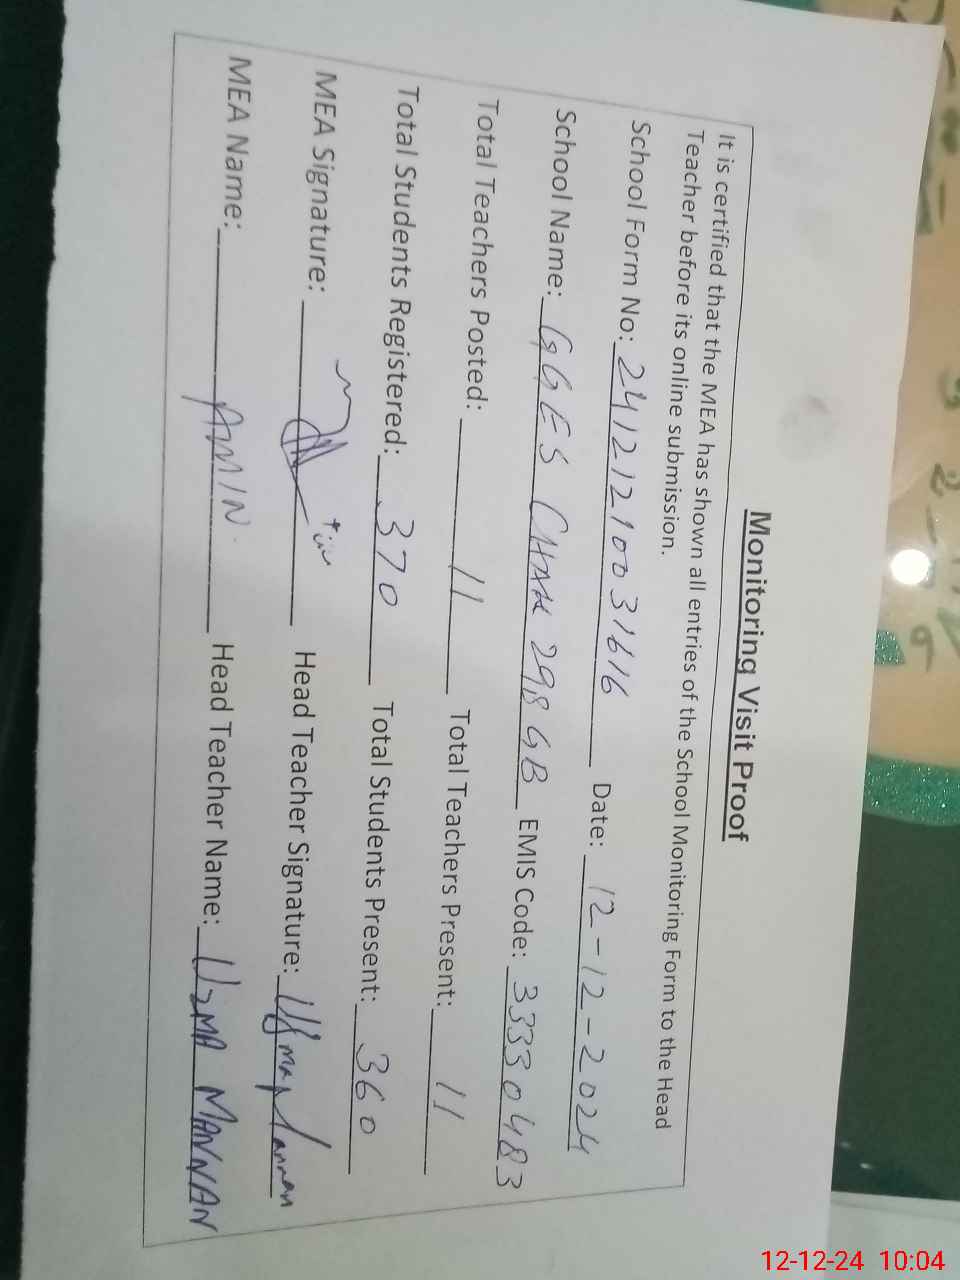 Monitoring Visit Proof
It is certified that the MEA has shown all entries of the School Monitoring Form to the Head
Teacher before its online submission.
School Form No: 24121210031616 Date: 12-12-2024
School Name: GGES CHAK 298 GB EMIS Code: 33330483
Total Teachers Posted: 11 Total Teachers Present: 11
Total Students Registered: 370 Total Students Present: 360
MEA Signature: Head Teacher Signature: Uzma Mannan
MEA Name: AMIN. Head Teacher Name: UZMA MANNAN
12-12-24 10:04